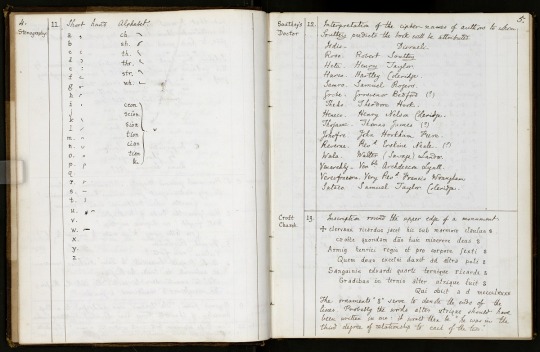 4.
Stenography
11.
Short hand Alphabet
a.
b.
c.
d.
e.
f.
g.
h.
i.
k.
l.
m.
n.
o.
p.
q.
r.
s.
t.
u.
v.
w.
x.
y.
z.
ch.
sh.
th.
thr.
str.
wh.
ceon
scion
sion
tion
cion
5.
Southey's
Doctor
12.
Interpretation of the cipher-names of authors to whom
Southey predicts the book will be attributed
Roso. Robert Southey
Heta. Henry Taylor
Harco. Hartley Coleridge
Samro. Samuel Rogers.
Grobe. Grosvenor Bedford (?)
Theho. Theodore Hook.
Heneco. Henry Nelson Coleridge.
Thojame. Thomas James (?)
Johofre. John Hookham Frere.
Reverne. Revd Erskine Neale (?)
Wala. Walter (Savage) Landor.
Venarchly. Venble Archdeacon Lyall.
Verevfrawra. Very Revd Francis Wrangham
Sateco. Samuel Taylor Coleridge.
Croft
Church
13.
Inscription round the upper edge of a monument.
clervaux ricardus jacet hic sub marmore clausus &
crofte quondam dns huic miserere deus &
Armig henrici regis et pro corpore sexti &
Quem deus excelsi duxit ad astra poli &
Sanguinis edwardi quarti ternique ricardi &
Gradibus in ternis alter utrique fuit &
Qui obiit a d
The ornaments "&" serve to denote the ends of the
lines. Probably the words alter utrique should have
been written in one: it would then be "he was in the
third degree of relationship to each of the two"